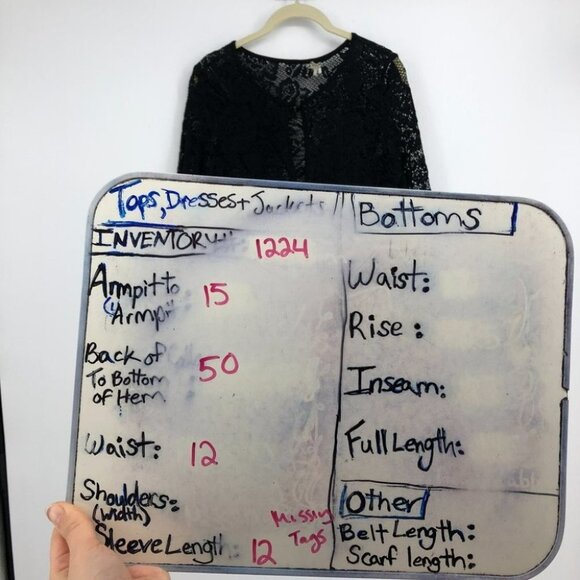 Tops, Dresses + Jackets
INVENTORY 1224
Armpit to
Armpit 15
Back of
To Bottom
of Hem 50
Waist: 12
Shoulders:
(width)
Missing
Tags
Sleeve Length: 12
Bottoms
Waist:
Rise:
Inseam:
Full Length:
Other
Belt Length:
Scarf length: